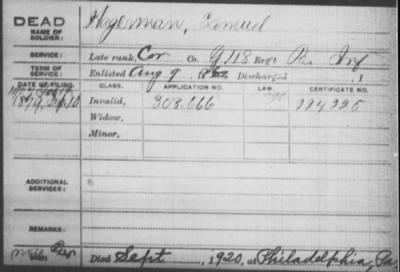 DEAD
NAME OF SOLDIER:
Hagerman, Lemuel
SERVICE:
Late rank, Cor Co. G 118 Reg't Pa. Inf
TERM OF SERVICE:
Enlisted Aug 9, 1862 Discharged , 1
DATE OF FILING. CLASS. APPLICATION NO. LAW. CERTIFICATE NO.
1879, Invalid, 308,666
Widow,
Minor,
ADDITIONAL SERVICES:
REMARKS:
Died Sept , 1920, at Philadelphia, Pa